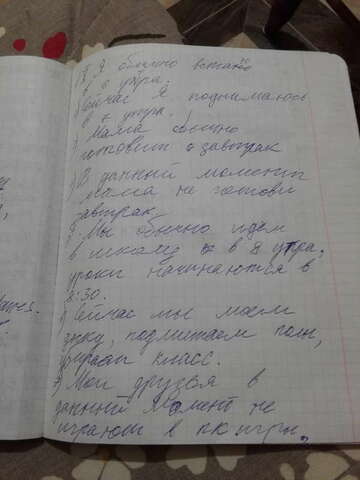 1) Я обычно встаю
в 6 утра.
Сейчас я поднимаюсь
в 7 утра.
Мама обычно
готовит завтрак
В данный момент
мама не готови
завтрак
Мы обычно идем
в школу в 8 утра,
уроки начинаются в
8:30.
Сейчас мы моем
доску, подметаем полы,
убираем класс.
7) Мои друзья в
данный момент не
играют в пк игры.